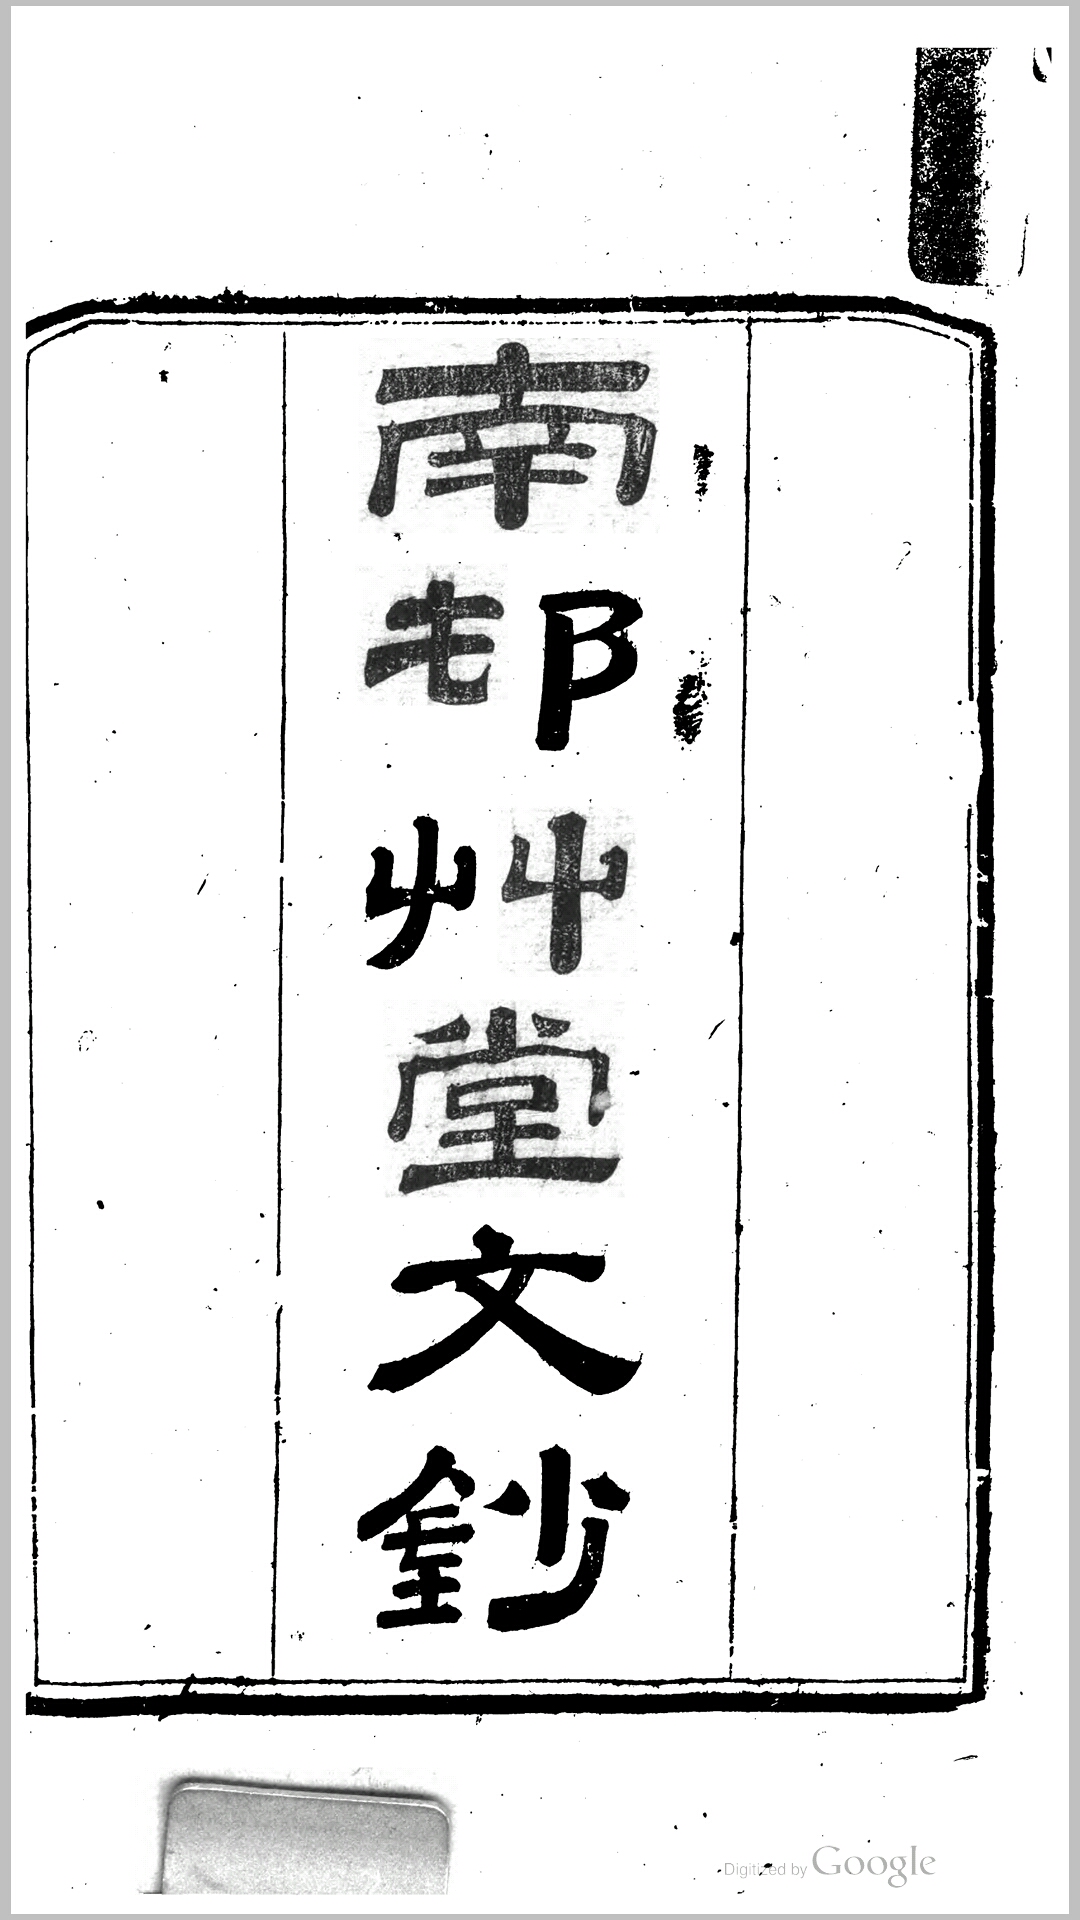 南邨艸堂文鈔
Digitized by Google